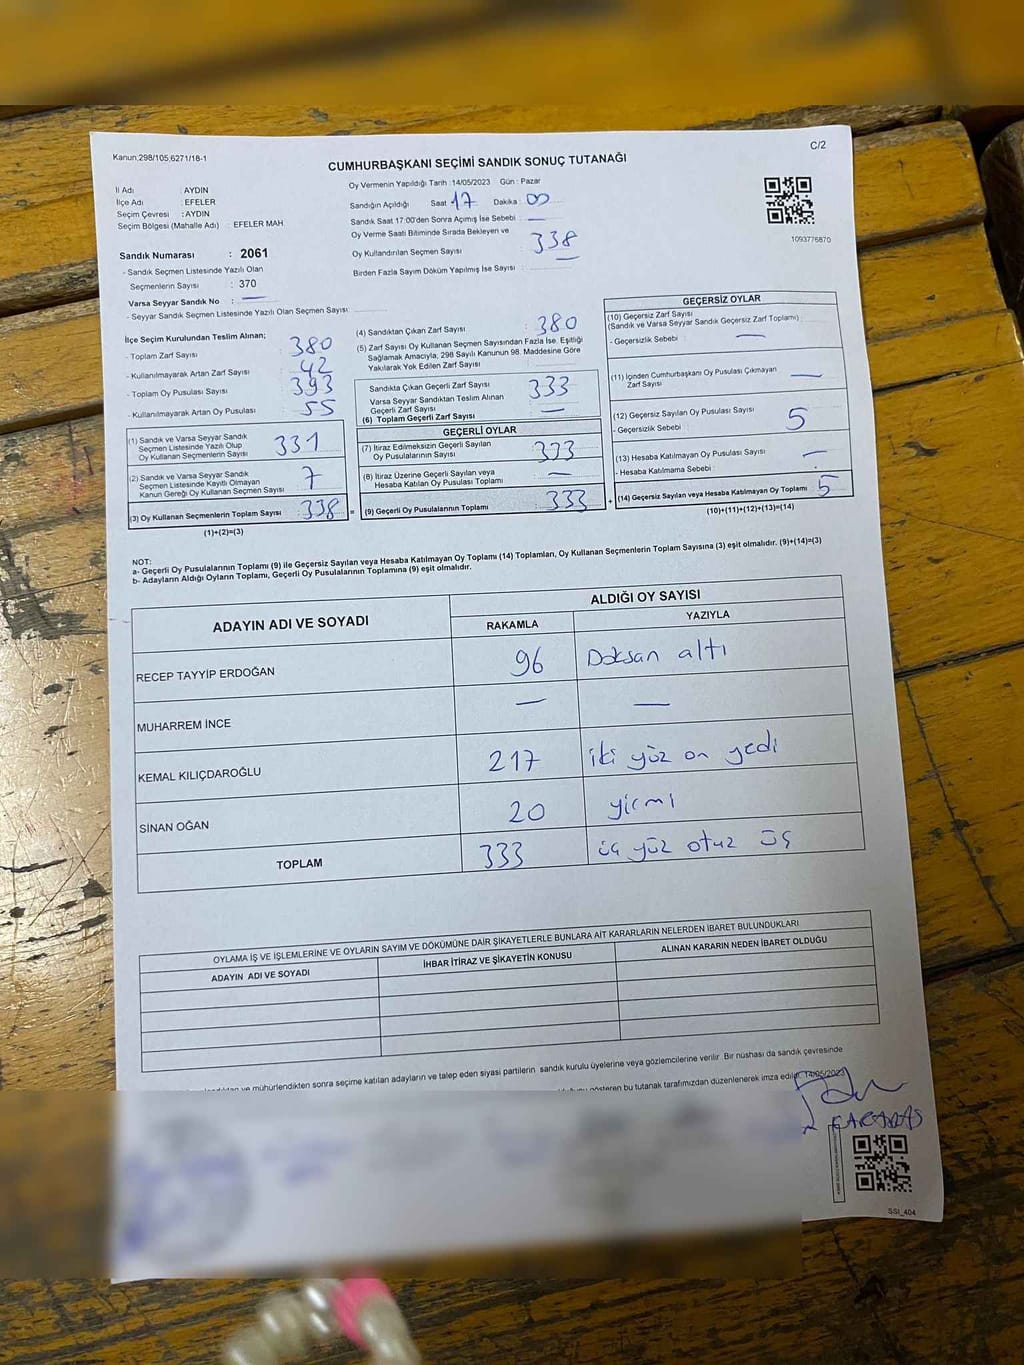 Kanun,298/105,6271/18-1
C/2
CUMHURBAŞKANI SEÇİMİ SANDIK SONUÇ TUTANAĞI
İl Adı : AYDIN
İlçe Adı : EFELER
Seçim Çevresi : AYDIN
Seçim Bölgesi (Mahalle Adı) : EFELER MAH
Sandık Numarası : 2061
- Sandık Seçmen Listesinde Yazılı Olan
Seçmenlerin Sayısı : 370
Varsa Seyyar Sandık No : —
- Seyyar Sandık Seçmen Listesinde Yazılı Olan Seçmen Sayısı:
Oy Vermenin Yapıldığı Tarih :14/05/2023 Gün : Pazar
Sandığın Açıldığı Saat 17 Dakika : 00
Sandık Saat 17:00'den Sonra Açımış İse Sebebi : —
Oy Verme Saati Bitiminde Sırada Bekleyen ve
Oy Kullandırılan Seçmen Sayısı : 338
Birden Fazla Sayım Döküm Yapılmış İse Sayısı :
1093776870
İlçe Seçim Kurulundan Teslim Alınan;
- Toplam Zarf Sayısı : 380
- Kullanılmayarak Artan Zarf Sayısı : 42
- Toplam Oy Pusulası Sayısı : 393
- Kullanılmayarak Artan Oy Pusulası : 55
(1) Sandık ve Varsa Seyyar Sandık
Seçmen Listesinde Yazılı Olup
Oy Kullanan Seçmenlerin Sayısı 331
(2) Sandık ve Varsa Seyyar Sandık
Seçmen Listesinde Kayıtlı Olmayan
Kanun Gereği Oy Kullanan Seçmen Sayısı : 7
(3) Oy Kullanan Seçmenlerin Toplam Sayısı : 338 =
(1)+(2)=(3)
(4) Sandıktan Çıkan Zarf Sayısı : 380
(5) Zarf Sayısı Oy Kullanan Seçmen Sayısından Fazla İse, Eşitliği
Sağlamak Amacıyla, 298 Sayılı Kanunun 98. Maddesine Göre
Yakılarak Yok Edilen Zarf Sayısı :
Sandıkta Çıkan Geçerli Zarf Sayısı : 333
Varsa Seyyar Sandıktan Teslim Alınan
Geçerli Zarf Sayısı : —
(6) Toplam Geçerli Zarf Sayısı :
GEÇERLİ OYLAR
(7) İtiraz Edilmeksizin Geçerli Sayılan
Oy Pusulalarının Sayısı : 333
(8) İtiraz Üzerine Geçerli Sayılan veya
Hesaba Katılan Oy Pusulası Toplamı : —
(9) Geçerli Oy Pusulalarının Toplamı : 333 +
GEÇERSİZ OYLAR
(10) Geçersiz Zarf Sayısı
(Sandık ve Varsa Seyyar Sandık Geçersiz Zarf Toplamı) :
- Geçersizlik Sebebi : —
(11) İçinden Cumhurbaşkanı Oy Pusulası Çıkmayan
Zarf Sayısı : —
(12) Geçersiz Sayılan Oy Pusulası Sayısı : 5
- Geçersizlik Sebebi :
(13) Hesaba Katılmayan Oy Pusulası Sayısı : —
- Hesaba Katılmama Sebebi :
(14) Geçersiz Sayılan veya Hesaba Katılmayan Oy Toplamı : 5
(10)+(11)+(12)+(13)=(14)
NOT:
a- Geçerli Oy Pusulalarının Toplamı (9) ile Geçersiz Sayılan veya Hesaba Katılmayan Oy Toplamı (14) Toplamları, Oy Kullanan Seçmenlerin Toplam Sayısına (3) eşit olmalıdır. (9)+(14)=(3)
b- Adayların Aldığı Oyların Toplamı, Geçerli Oy Pusulalarının Toplamına (9) eşit olmalıdır.
ADAYIN ADI VE SOYADI ALDIĞI OY SAYISI
RAKAMLA YAZIYLA
RECEP TAYYİP ERDOĞAN 96 Doksan altı
MUHARREM İNCE — —
KEMAL KILIÇDAROĞLU 217 iki yüz on yedi
SİNAN OĞAN 20 yirmi
TOPLAM 333 üç yüz otuz üç
OYLAMA İŞ VE İŞLEMLERİNE VE OYLARIN SAYIM VE DÖKÜMÜNE DAİR ŞİKAYETLERLE BUNLARA AİT KARARLARIN NELERDEN İBARET BULUNDUKLARI
ADAYIN ADI VE SOYADI İHBAR İTİRAZ VE ŞİKAYETİN KONUSU ALINAN KARARIN NEDEN İBARET OLDUĞU
ve mühürlendikten sonra seçime katılan adayların ve talep eden siyasi partilerin sandık kurulu üyelerine veya gözlemcilerine verilir. Bir nüshası da sandık çevresinde
gösteren bu tutanak tarafımızdan düzenlenerek imza edilir. 14/05/2023
SSI_404